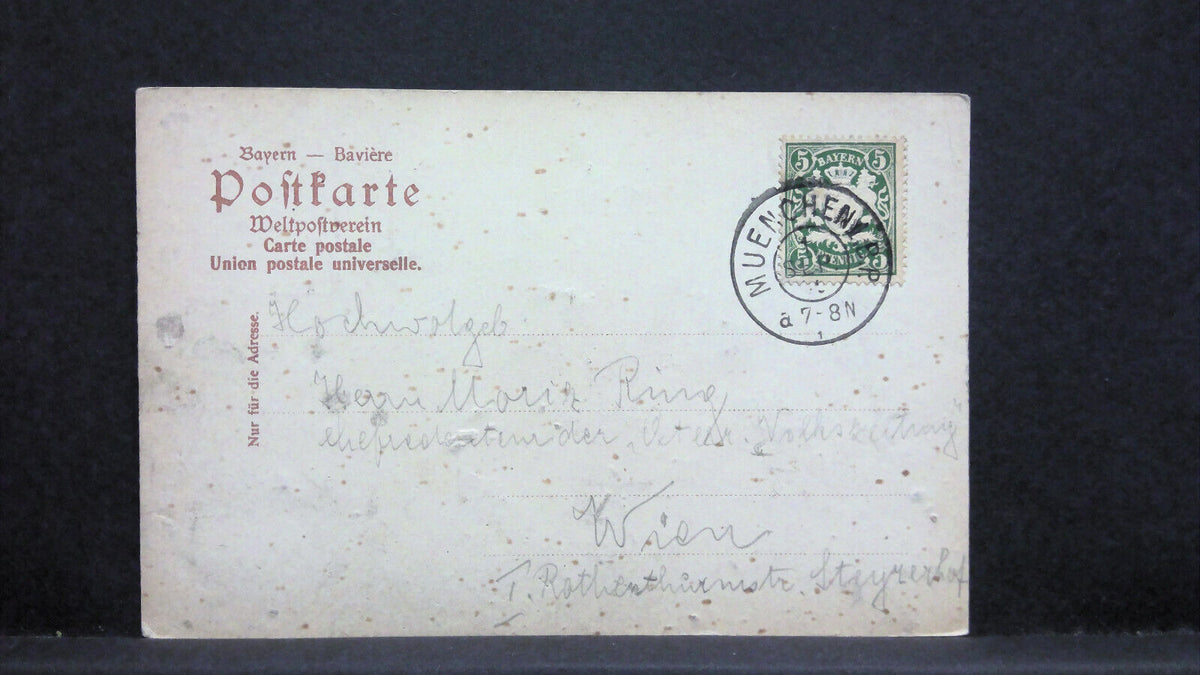 Bayern — Bavière
Postkarte
Weltpostverein
Carte postale
Union postale universelle.
Nur für die Adresse.
5 BAYERN 5
5 PFENNIG 5
MUENCHEN
a 7-8N
Hochwolgeb
Herrn Moriz Ring
der „Oesterr. Volkszeitung"
Wien
I. Rothenthurmstr. Steyrerhof